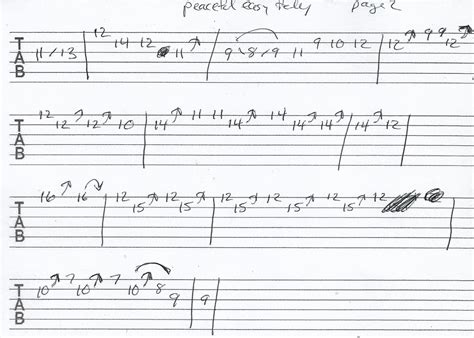 peaceful easy page 2
TAB 11/13 12 14 12 11 9\8/9 11 9 10 12 12 9 9 12
TAB 12 12 12 10 14 11 11 14 11 14 14 14 12
TAB 16 16 12 15 12 15 12 12 15 12 15 12 15 12 15 12
TAB 10 7 10 7 10 8 9 9